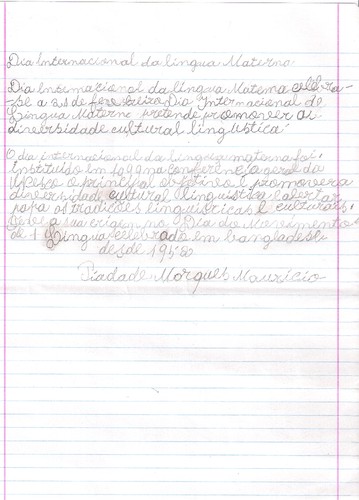 Dia Internacional da língua Materna
Dia Internacional da língua Materna celebra-
-se a 21 de fevereiro Dia Internacional de
Língua Materna pretende promover as
diverbsidade cultural linguística
O dia internacional da língua materna foi
instituido em 1999 na conferencia geral da
Unesco o principal objetivo é promover a
diversidade cultural linguistica e alertar
papa as tradicões linguisticas e culturais.
Deve a sua origem no Dia do Movimento
de Lingua celebrado em bangladesh
desde 1952
Piadade Morques Mauricio